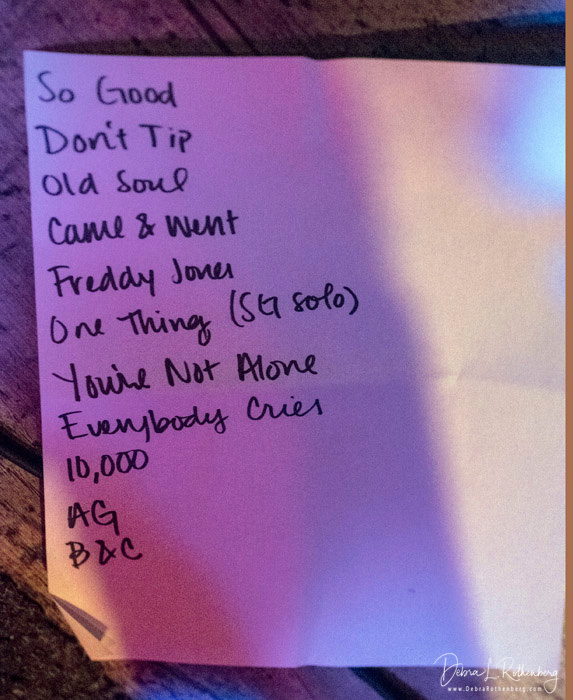 So Good
Don't Tip
Old Soul
Came & Went
Freddy Jones
One Thing (SG solo)
You're Not Alone
Everybody Cries
10,000
AG
B&C
Debra L Rothenberg
www.DebraRothenberg.com